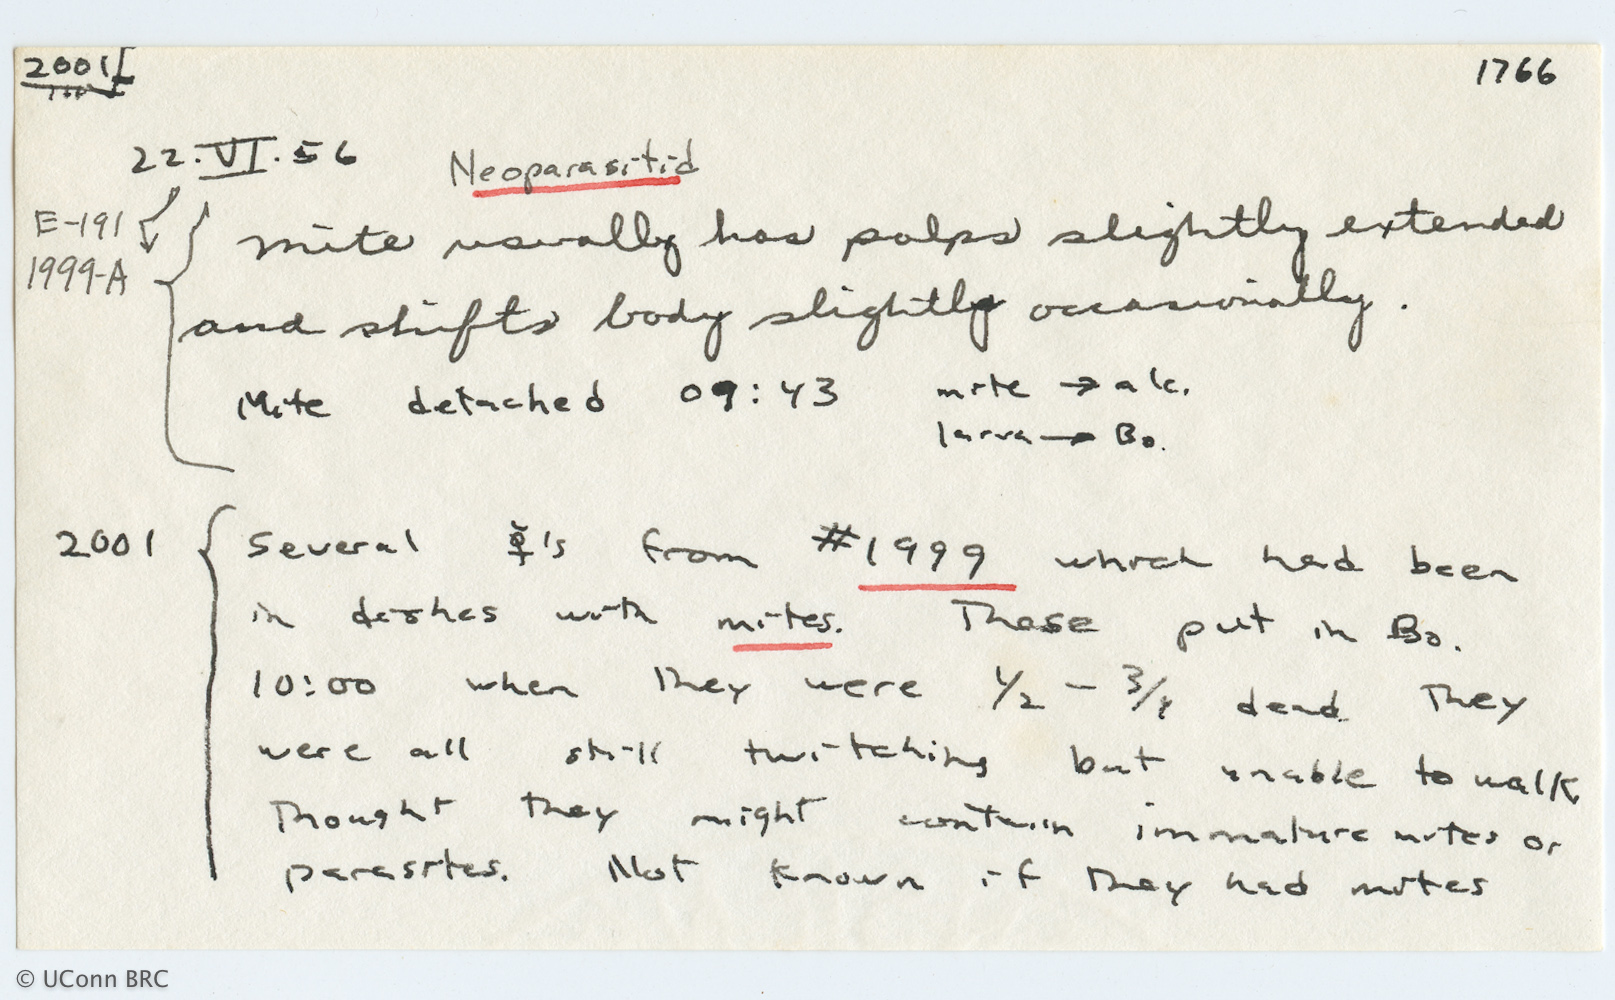 2001
1766
22.VI.56
Neoparasitid
E-191
1999-A
Mite usually has palps slightly extended
and shifts body slightly occasionally.
Mite detached 09:43 mite → alc.
larva → Bo.
2001 Several ☿'s from #1999 which had been
in dishes with mites. These put in Bo.
10:00 when they were 1/2 - 3/4 dead They
were all still twitching but unable to walk
Thought they might contain immature mites or
parasites. Not known if they had mites
© UConn BRC